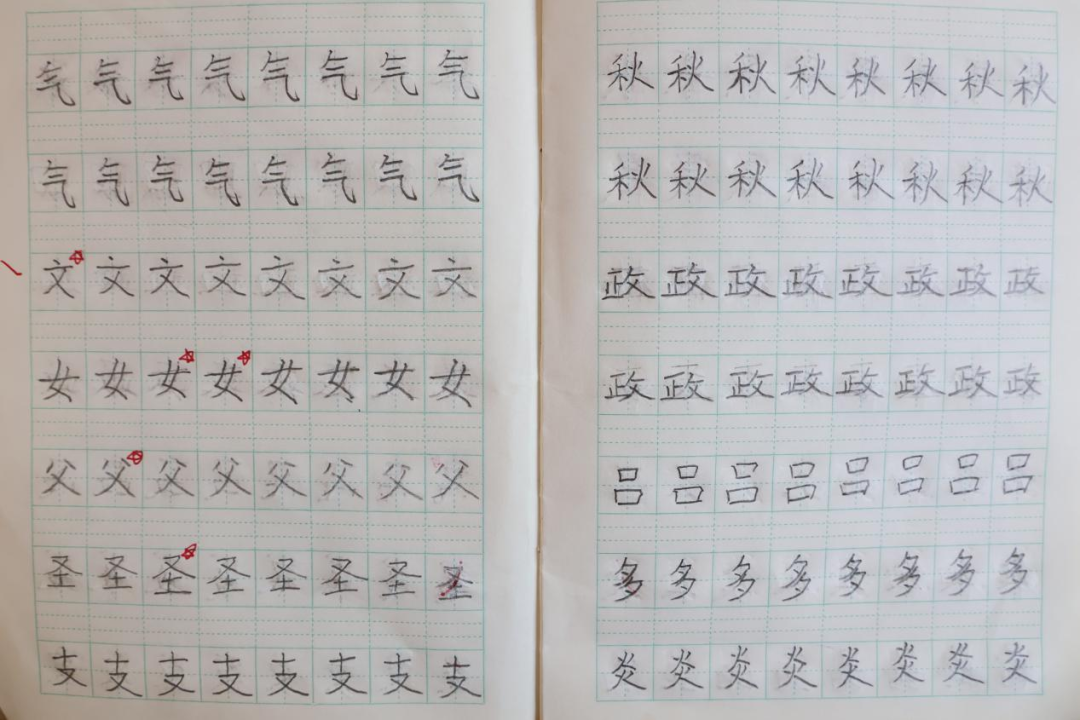 气气气气气气气气
气气气气气气气气
文文文文文文文文
女女女女女女女女
父父父父父父父父
圣圣圣圣圣圣圣圣
支支支支支支支支
秋秋秋秋秋秋秋秋
秋秋秋秋秋秋秋秋
政政政政政政政政
政政政政政政政政
吕吕吕吕吕吕吕吕
多多多多多多多多
炎炎炎炎炎炎炎炎